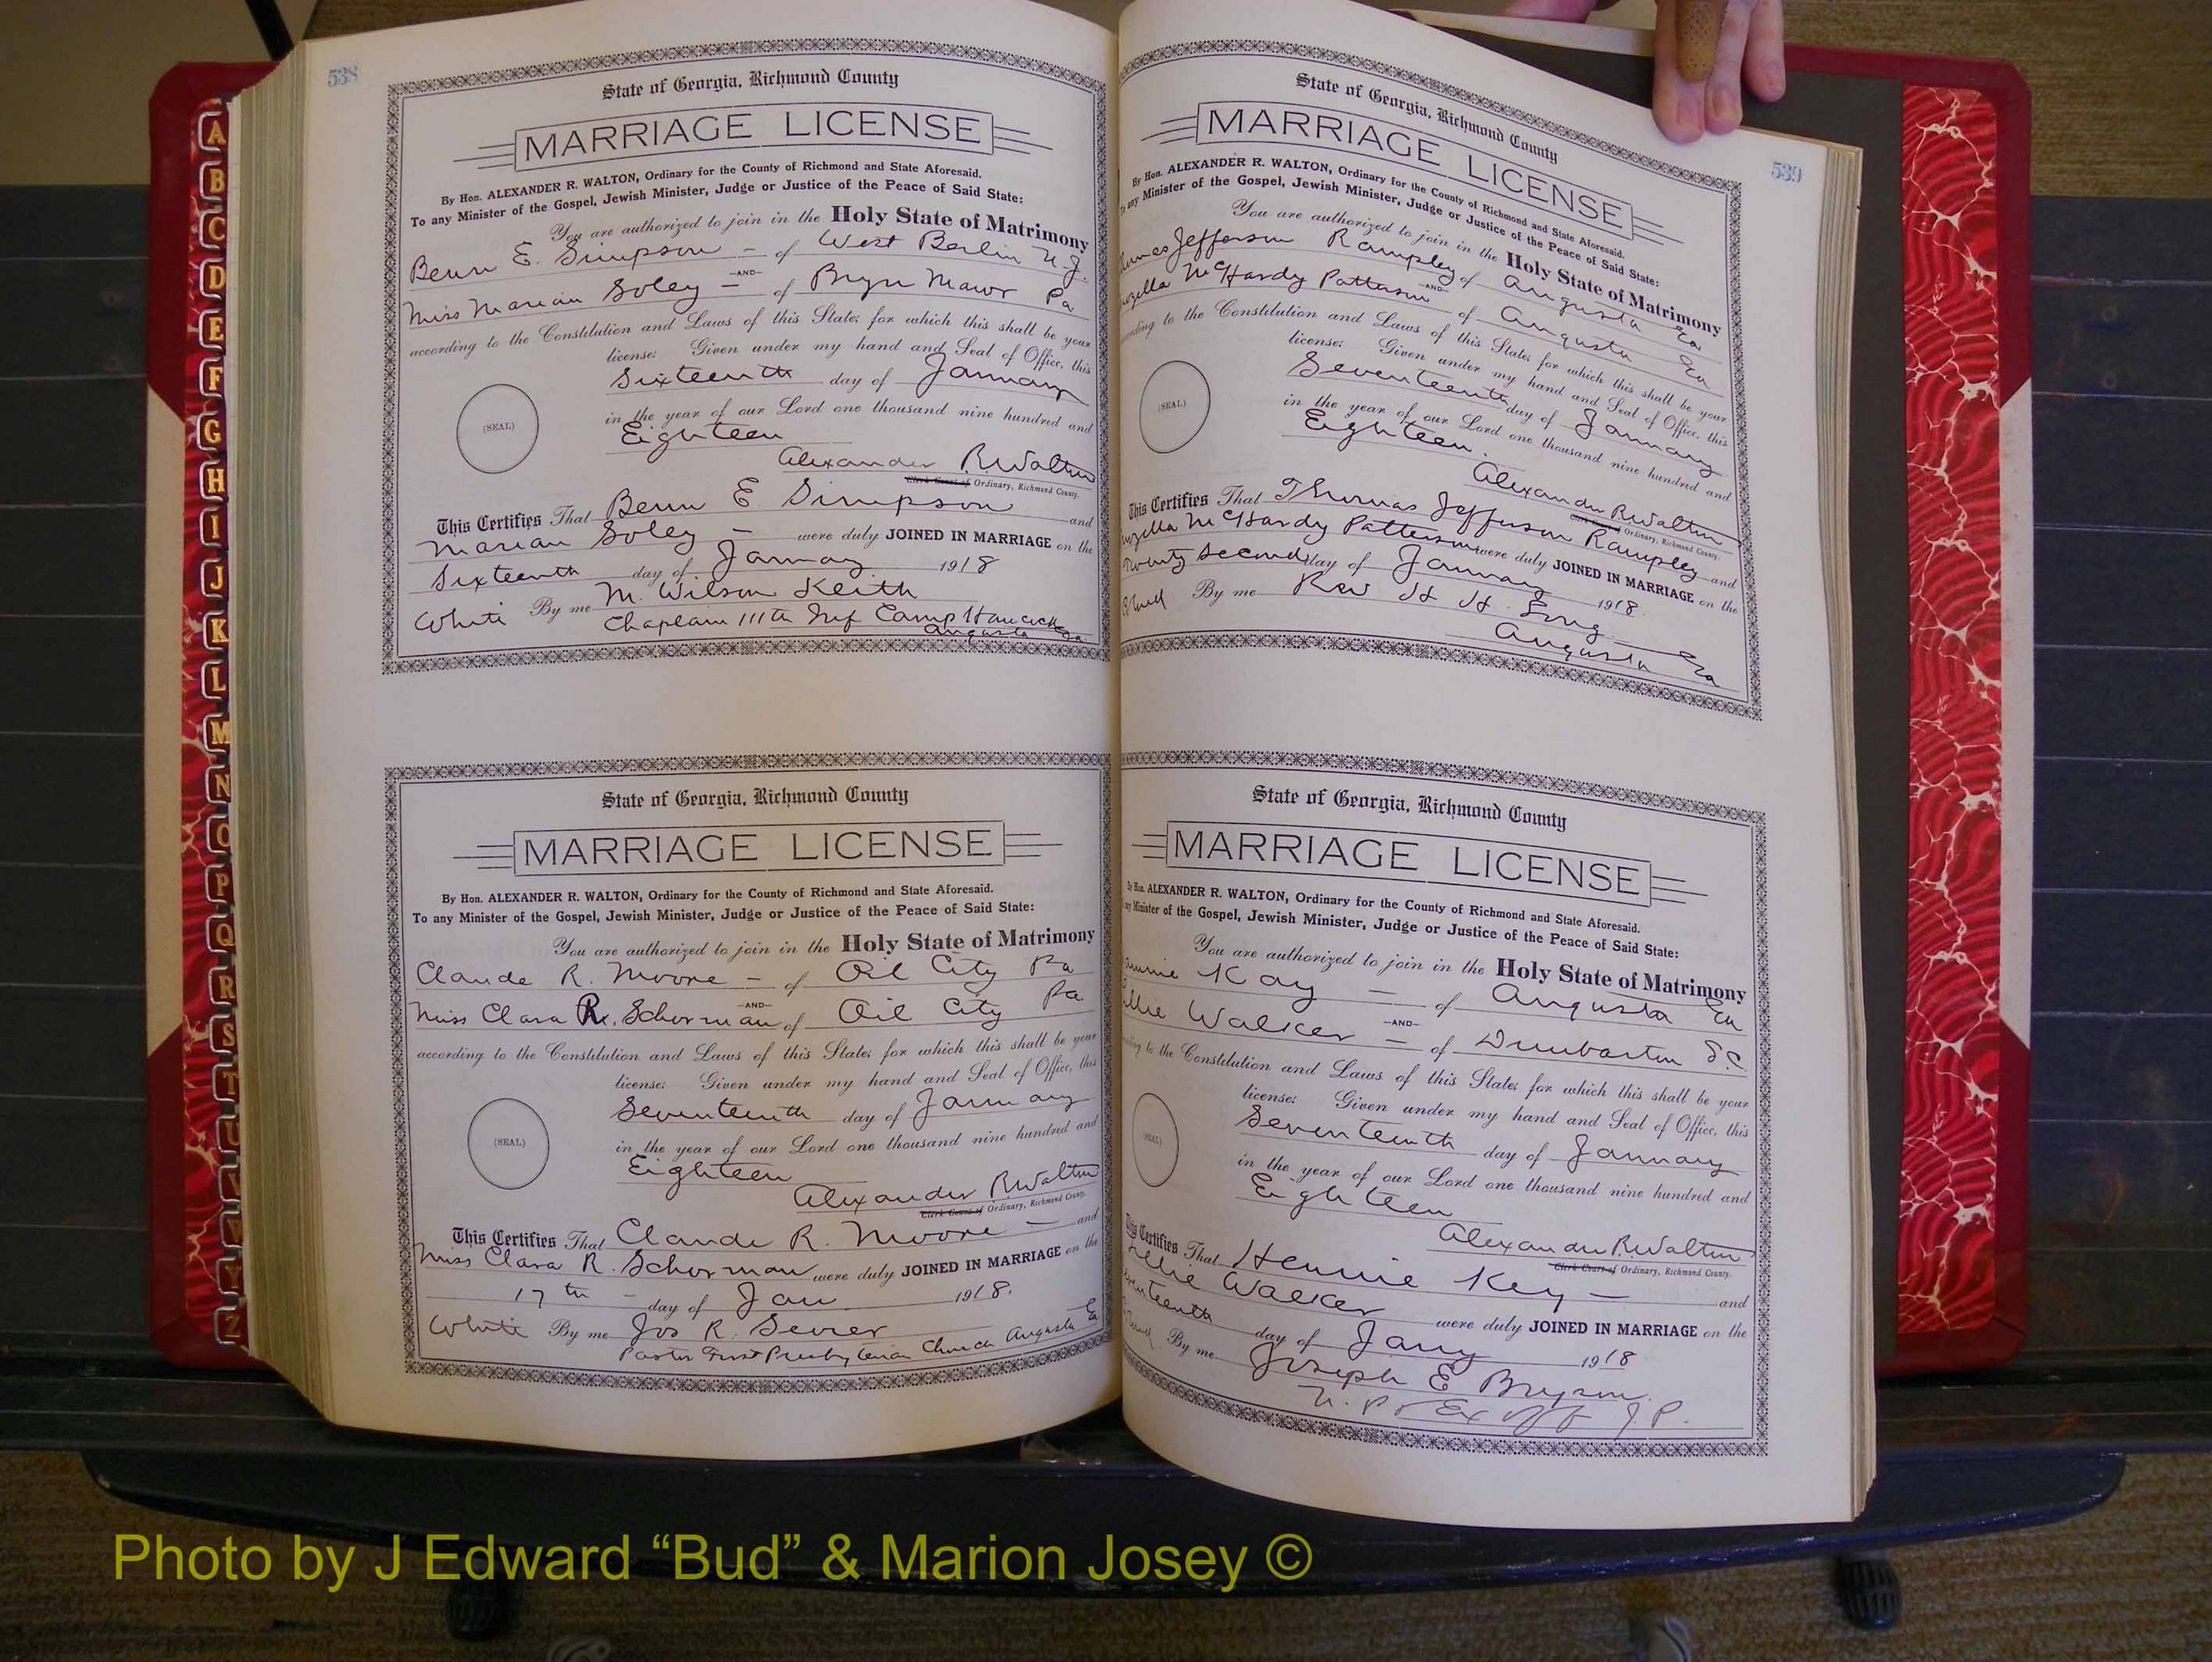 538
State of Georgia, Richmond County
MARRIAGE LICENSE
By Hon. ALEXANDER R. WALTON, Ordinary for the County of Richmond and State Aforesaid.
To any Minister of the Gospel, Jewish Minister, Judge or Justice of the Peace of Said State:
You are authorized to join in the Holy State of Matrimony
Benn E. Simpson - of West Berlin N.J.
-AND-
Miss Marian Soley - of Bryn Mawr Pa
according to the Constitution and Laws of this State; for which this shall be your
license: Given under my hand and Seal of Office, this
Sixteenth day of January
(SEAL)
in the year of our Lord one thousand nine hundred and
Eighteen
Alexander R. Walton
Clerk Court of Ordinary, Richmond County.
This Certifies That Benn E Simpson and
Marian Soley - were duly JOINED IN MARRIAGE on the
Sixteenth day of January 1918
White By me M. Wilson Keith
Chaplain 111th Inf Camp Hancock
Augusta Ga
State of Georgia, Richmond County
MARRIAGE LICENSE
By Hon. ALEXANDER R. WALTON, Ordinary for the County of Richmond and State Aforesaid.
To any Minister of the Gospel, Jewish Minister, Judge or Justice of the Peace of Said State:
You are authorized to join in the Holy State of Matrimony
Claude R. Moore - of Oil City Pa
-AND-
Miss Clara R. Schorman of Oil City Pa
according to the Constitution and Laws of this State; for which this shall be your
license: Given under my hand and Seal of Office, this
Seventeenth day of January
(SEAL)
in the year of our Lord one thousand nine hundred and
Eighteen
Alexander R. Walton
Clerk Court of Ordinary, Richmond County.
This Certifies That Claude R. Moore - and
Miss Clara R. Schorman were duly JOINED IN MARRIAGE on the
17th - day of Jan 1918.
White By me Jos R. Sevier
Pastor First Presbyterian Church Augusta Ga
539
State of Georgia, Richmond County
MARRIAGE LICENSE
By Hon. ALEXANDER R. WALTON, Ordinary for the County of Richmond and State Aforesaid.
To any Minister of the Gospel, Jewish Minister, Judge or Justice of the Peace of Said State:
You are authorized to join in the Holy State of Matrimony
Jefferson Rampley of Augusta Ga
-AND-
McHardy Patterson of Augusta Ga
to the Constitution and Laws of this State; for which this shall be your
license: Given under my hand and Seal of Office, this
Seventeenth day of January
(SEAL)
in the year of our Lord one thousand nine hundred and
Eighteen.
Alexander R. Walton
Clerk Court of Ordinary, Richmond County.
This Certifies That Thomas Jefferson Rampley and
McHardy Patterson were duly JOINED IN MARRIAGE on the
Twenty Second day of January 1918.
By me Rev H. H. Long
Augusta Ga
State of Georgia, Richmond County
MARRIAGE LICENSE
By Hon. ALEXANDER R. WALTON, Ordinary for the County of Richmond and State Aforesaid.
any Minister of the Gospel, Jewish Minister, Judge or Justice of the Peace of Said State:
You are authorized to join in the Holy State of Matrimony
Kay - of Augusta Ga
-AND-
Walker - of Dunbarton S.C.
to the Constitution and Laws of this State; for which this shall be your
license: Given under my hand and Seal of Office, this
Seventeenth day of January
(SEAL)
in the year of our Lord one thousand nine hundred and
Eighteen
Alexander R. Walton
Clerk Court of Ordinary, Richmond County.
This Certifies That Hennie Key - and
Walker were duly JOINED IN MARRIAGE on the
day of Jany 1918
By me Joseph E Bryson.
N.P & Ex off J.P.
A
B
C
D
E
F
G
H
I
J
K
L
M
N
O
P
Q
R
S
T
U
V
W
Y
Z
Photo by J Edward “Bud” & Marion Josey ©